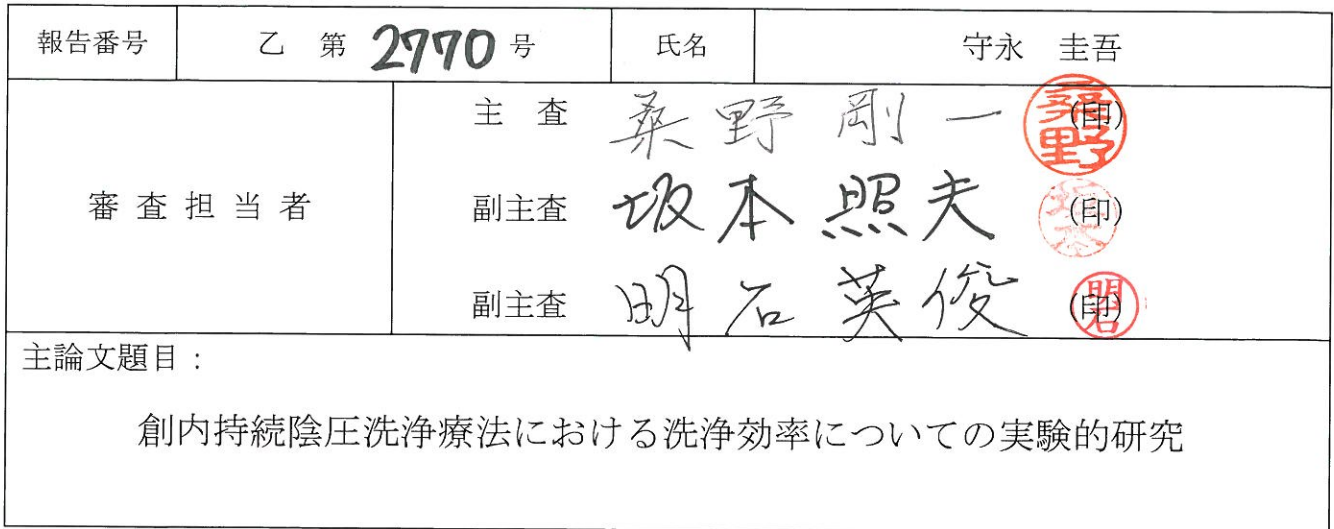 報告番号 乙 第 2770 号 氏名 守永 圭吾
審査担当者
主 査 桑野剛一 (印) 桑野
副主査 坂本照夫 (印) 坂本
副主査 明石英俊 (印) 明石
主論文題目:
創内持続陰圧洗浄療法における洗浄効率についての実験的研究